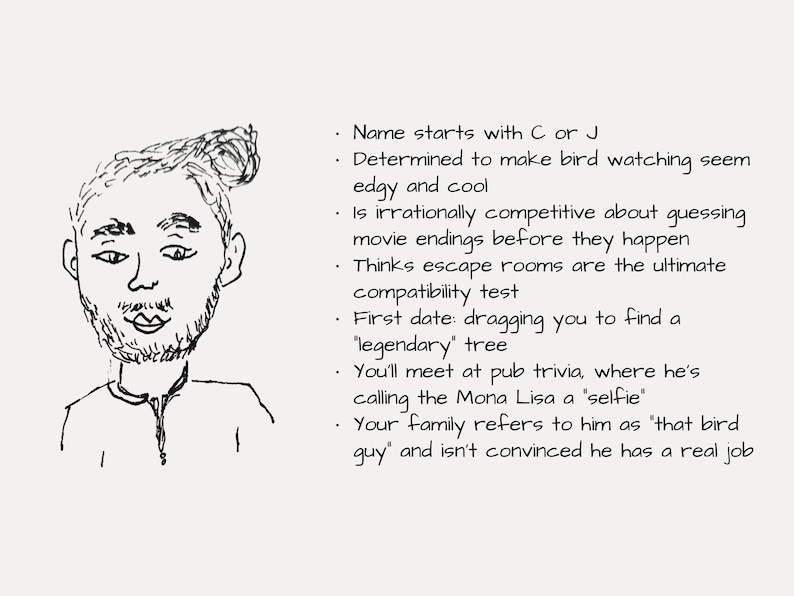 · Name starts with C or J
· Determined to make bird watching seem
edgy and cool
· Is irrationally competitive about guessing
movie endings before they happen
· Thinks escape rooms are the ultimate
compatibility test
· First date: dragging you to find a
"legendary" tree
· You'll meet at pub trivia, where he's
calling the Mona Lisa a "selfie"
· Your family refers to him as "that bird
guy" and isn't convinced he has a real job